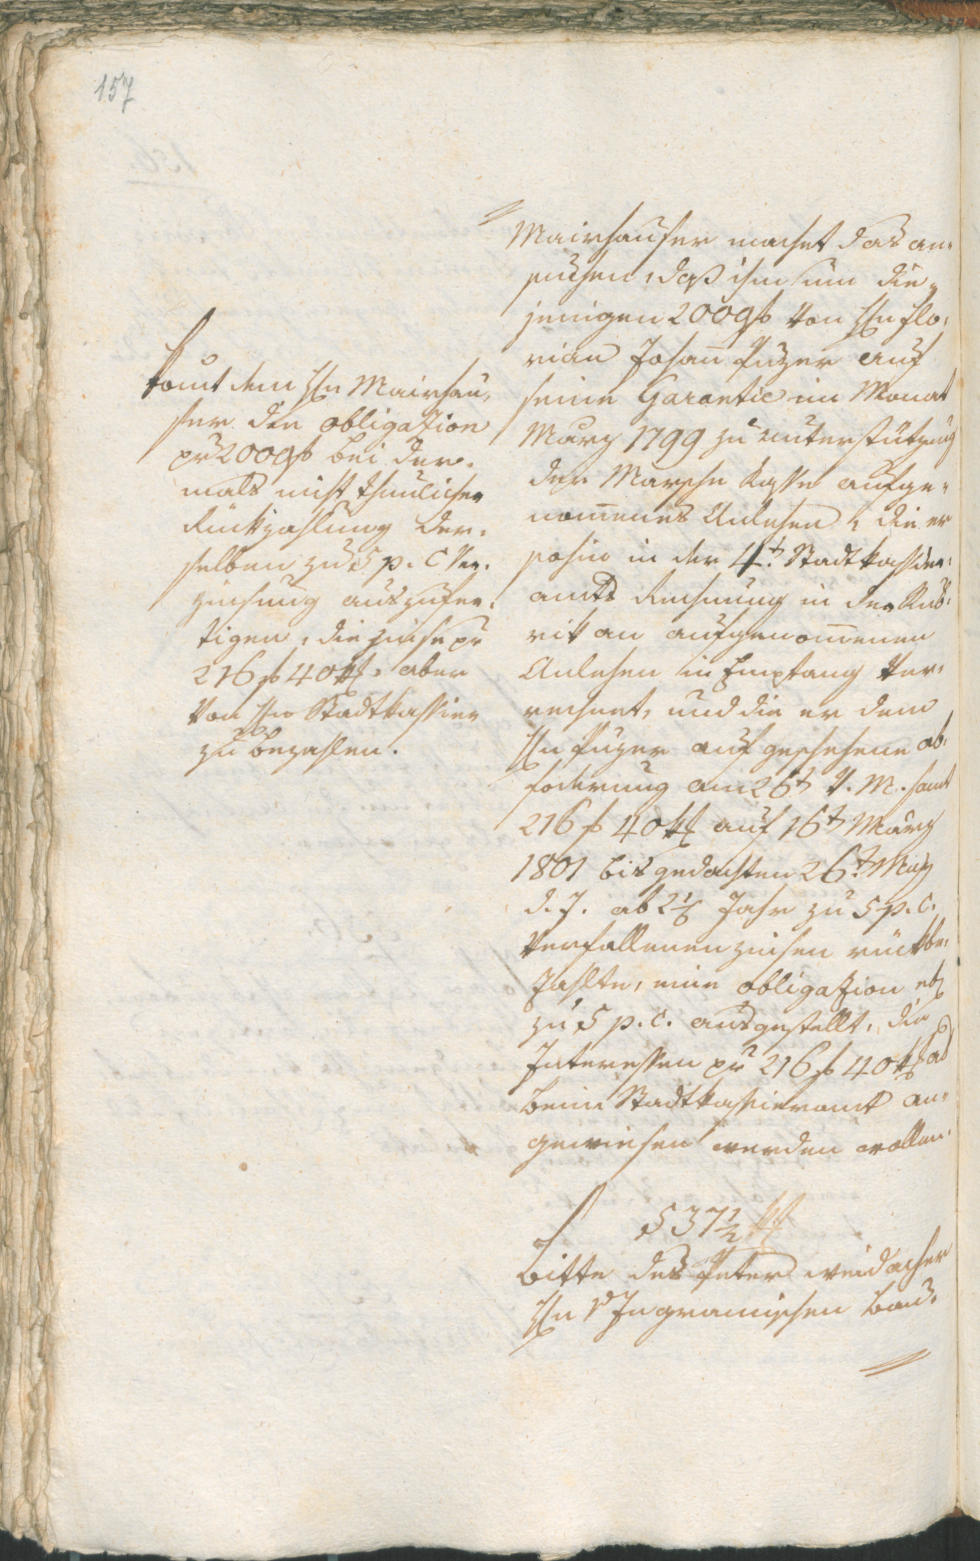 157
Komt dem Hn Mairhau,,
ser die Obligation
pr 2000 f bei der,,
mals nicht thunlicher
Rückzahlung der,,
selben zu 5 p. C Ver,,
zinsung auszufer,,
tigen, die Zinse pr
216 f 40 kr aber
von Hn Stadtkassier
zu bezahlen.
Mairhauser machet das an,,
suchen, daß ihm um die,,
jenigen 2000 f von Hn Flo,,
rian Johan̄ Puzer auf
seine Garantie im Monat
März 1799 zu unterstützung
der Marsche Kasse aufge,,
nom̄enes Anlehen, die er
sohin in der 4t. Stadtkassier,,
amts Rechnung in der Rub,,
rik an aufgenom̄enen
Anlehen in Empfang ver,,
rechnet, und die er dem
Hn Puzer auf geschehene ab,,
foderung am 26t v. M. samt
216 f 40 kr auf 16t März
1801 bis gedachten 26t. May
d. J. ab 2 1/6 Jahr zu 5 p. C.
verfallenen Zinsen rückbe,,
zahlte, eine Obligazion
zu 5 p. C. ausgestellt, die
Interessen pr 216 f 40 kr
beim Stadtkassieramt an,,
gewiesen werden wollen.
537 1/2
Bitte des Peter Weidacher
Hn v Ingramischen Bau,,